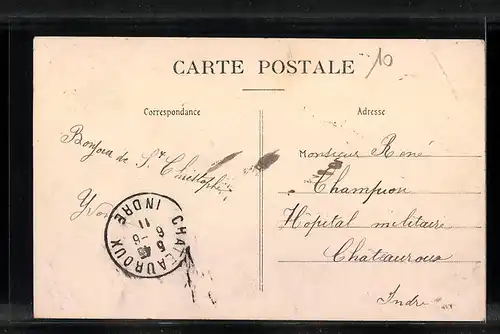 10
CARTE POSTALE
Correspondance
Adresse
Bonjour de St Christophe
Yvon
CHATEAUROUX
INDRE
Monsieur René
Champion
Hôpital militaire
Châteauroux
Indre